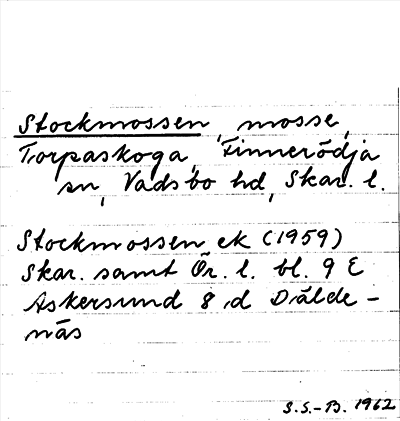 Stockmossen, mosse,
Torpaskoga, Finnerödja
sn, Vadsbo hd, Skar. l.
Stockmossen ek (1959)
Skar. samt Ör. l. bl. 9 E
Askersund 8 d Dälde-
näs
S.S.-B. 1962